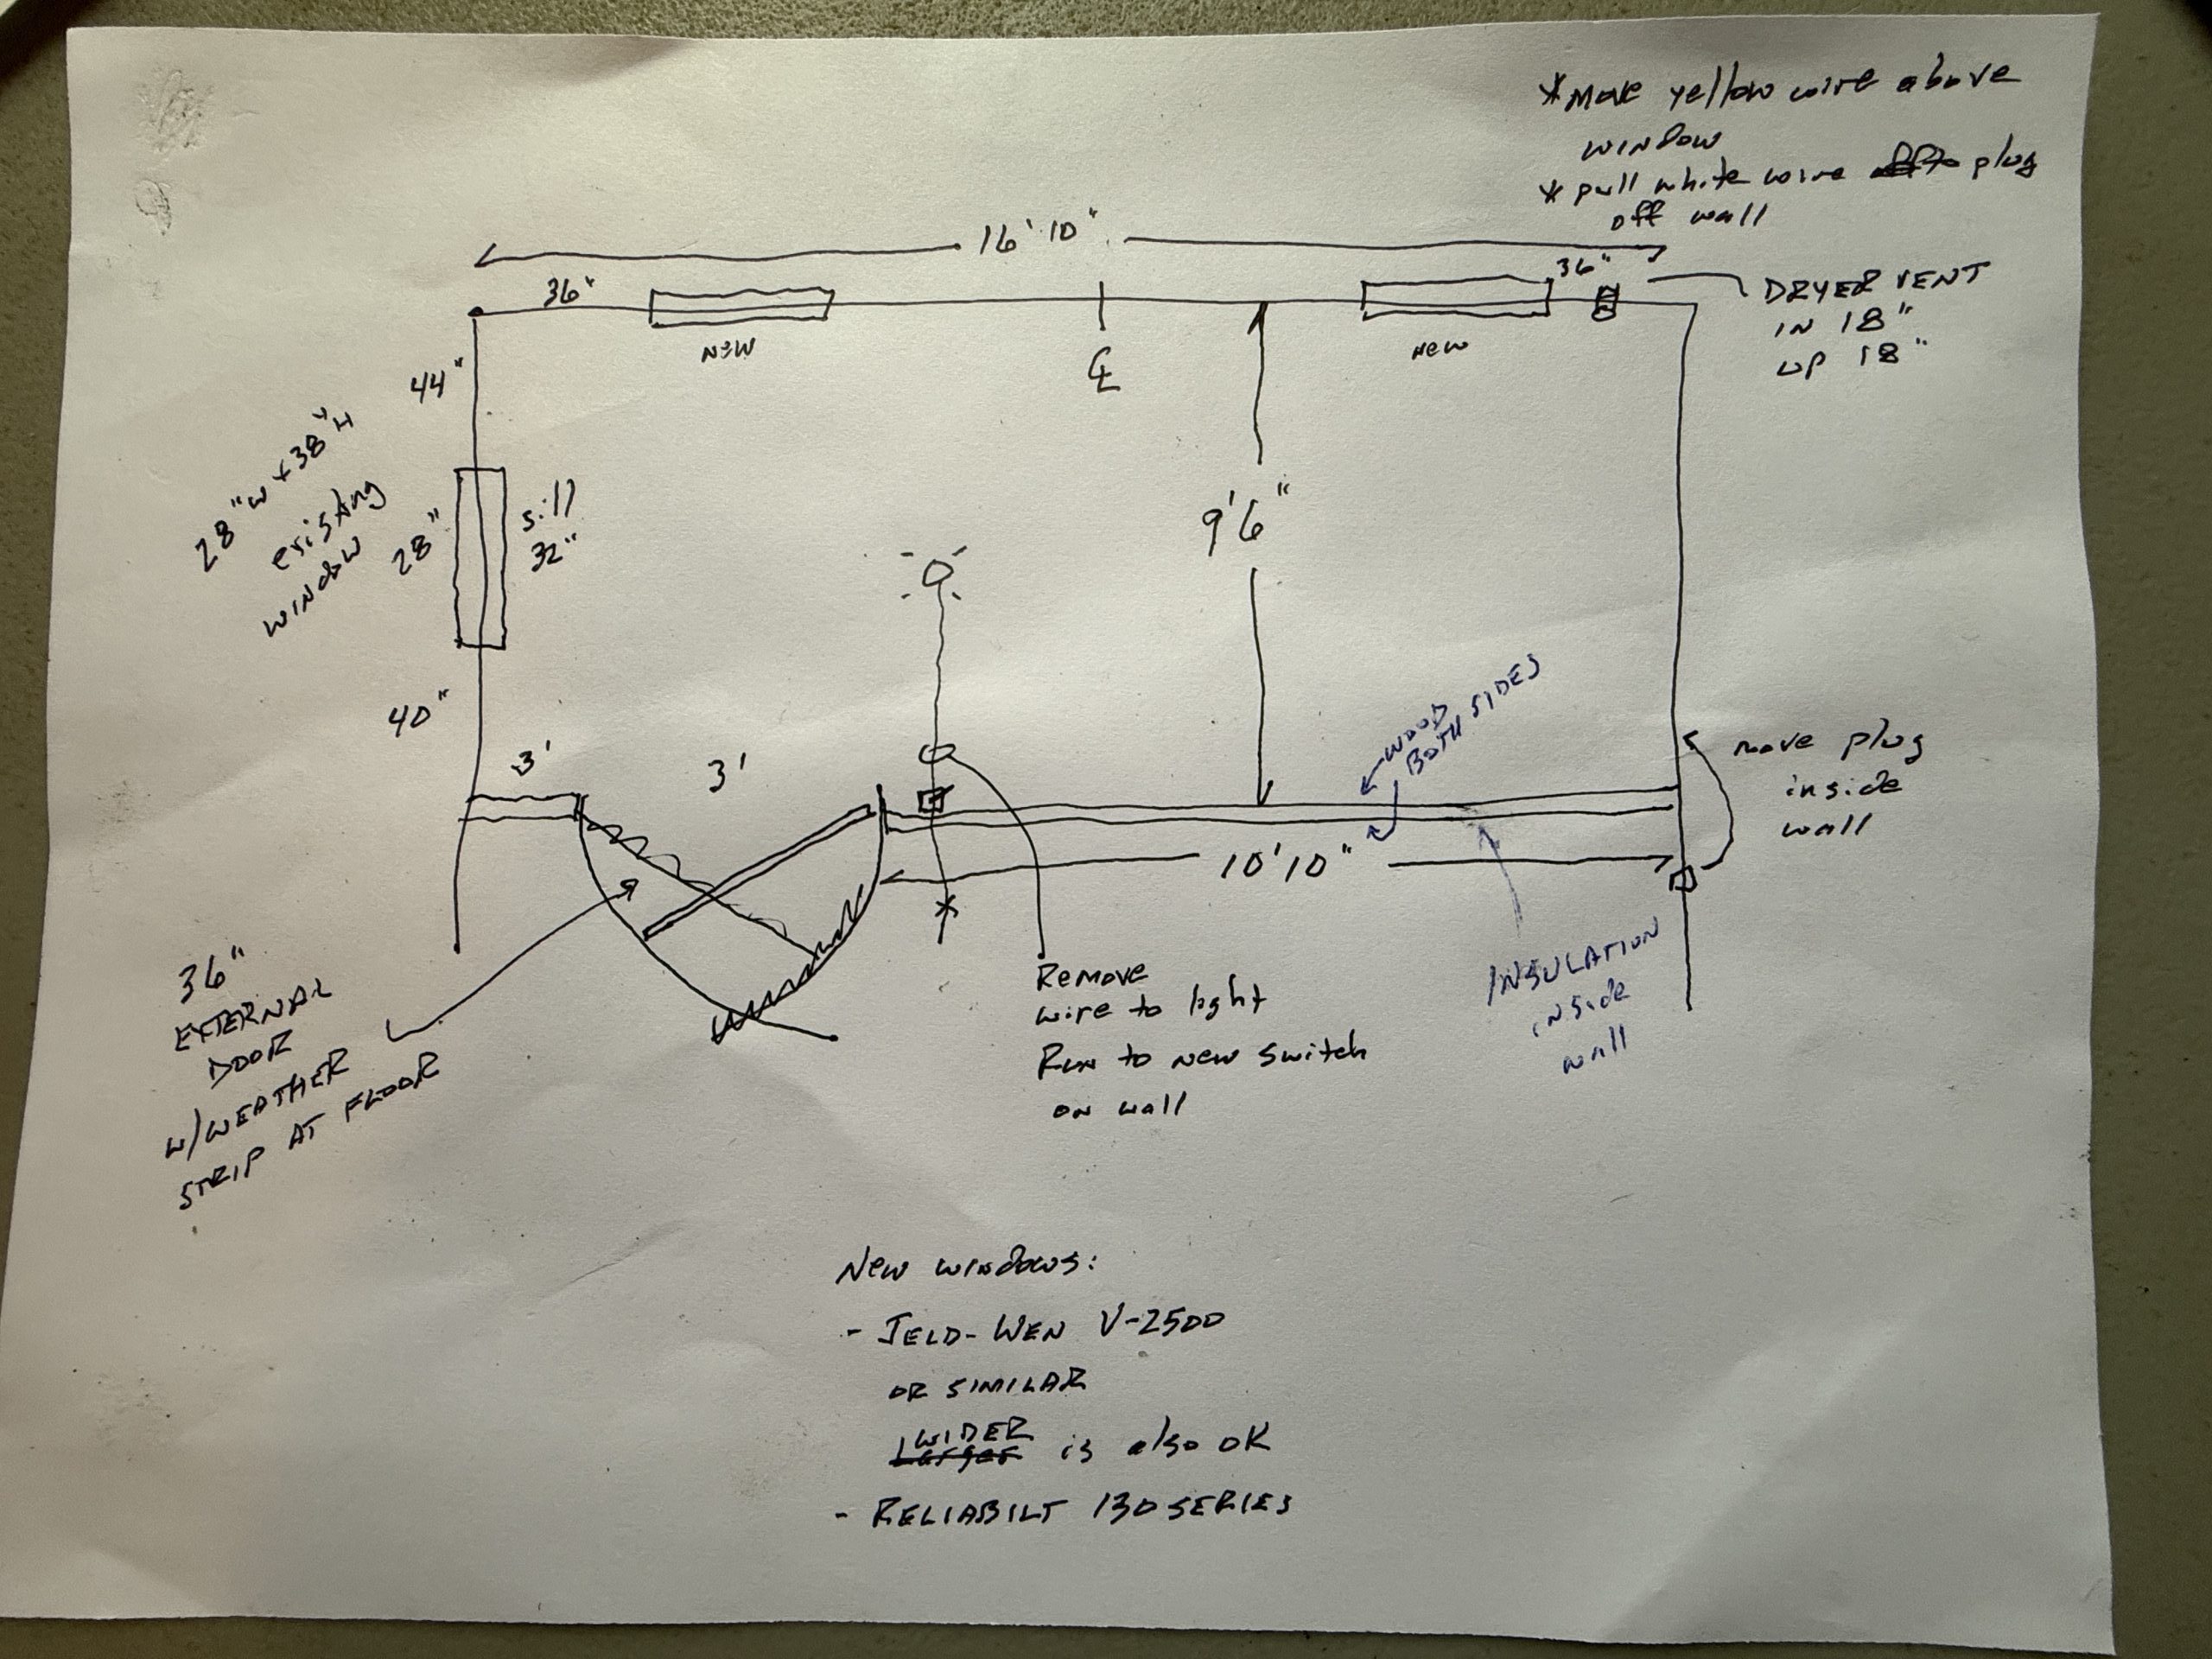 *Move yellow wire above
window
* pull white wire plug
off wall
16' 10"
36"
36"
DRYER VENT
IN 18"
UP 18"
NEW
℄
NEW
44"
28"W x 38"H
existing
window
28"
sill
32"
9'6"
40"
3'
3'
WOOD
BOTH SIDES
move plug
inside
wall
10'10"
36"
EXTERNAL
DOOR
W/WEATHER
STRIP AT FLOOR
Remove
wire to light
Run to new switch
on wall
INSULATION
inside
wall
New windows:
- JELD-WEN V-2500
OR SIMILAR
WIDER
Larger is also OK
- RELIABILT 130 SERIES